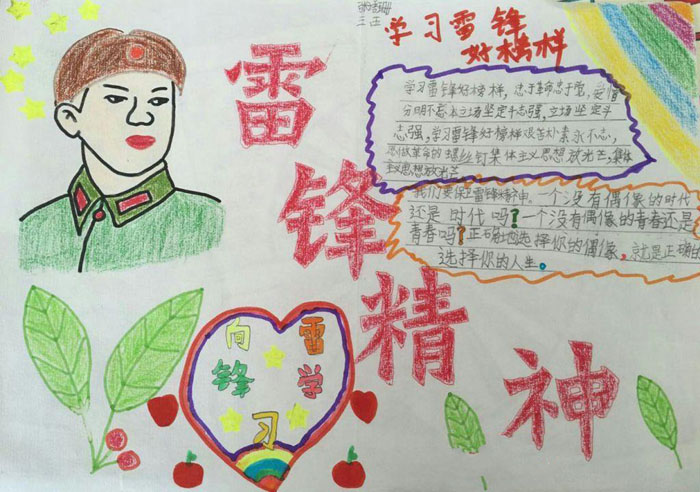 学习雷锋
好榜样
学习雷锋好榜样,忠于革命忠于党,爱憎
分明不忘本立场坚定斗志强,立场坚定斗
志强,学习雷锋好榜样艰苦朴素永不忘,
愿做革命的螺丝钉集体主义思想放光芒,集体
主义思想放光芒
我们要 雷锋精神。一个没有偶像的时代
还是时代吗?一个没有偶像的青春还是
青春吗?正确地选择你的偶像,就是正确
选择你的人生。
雷
锋
精
神
向雷
锋学
习